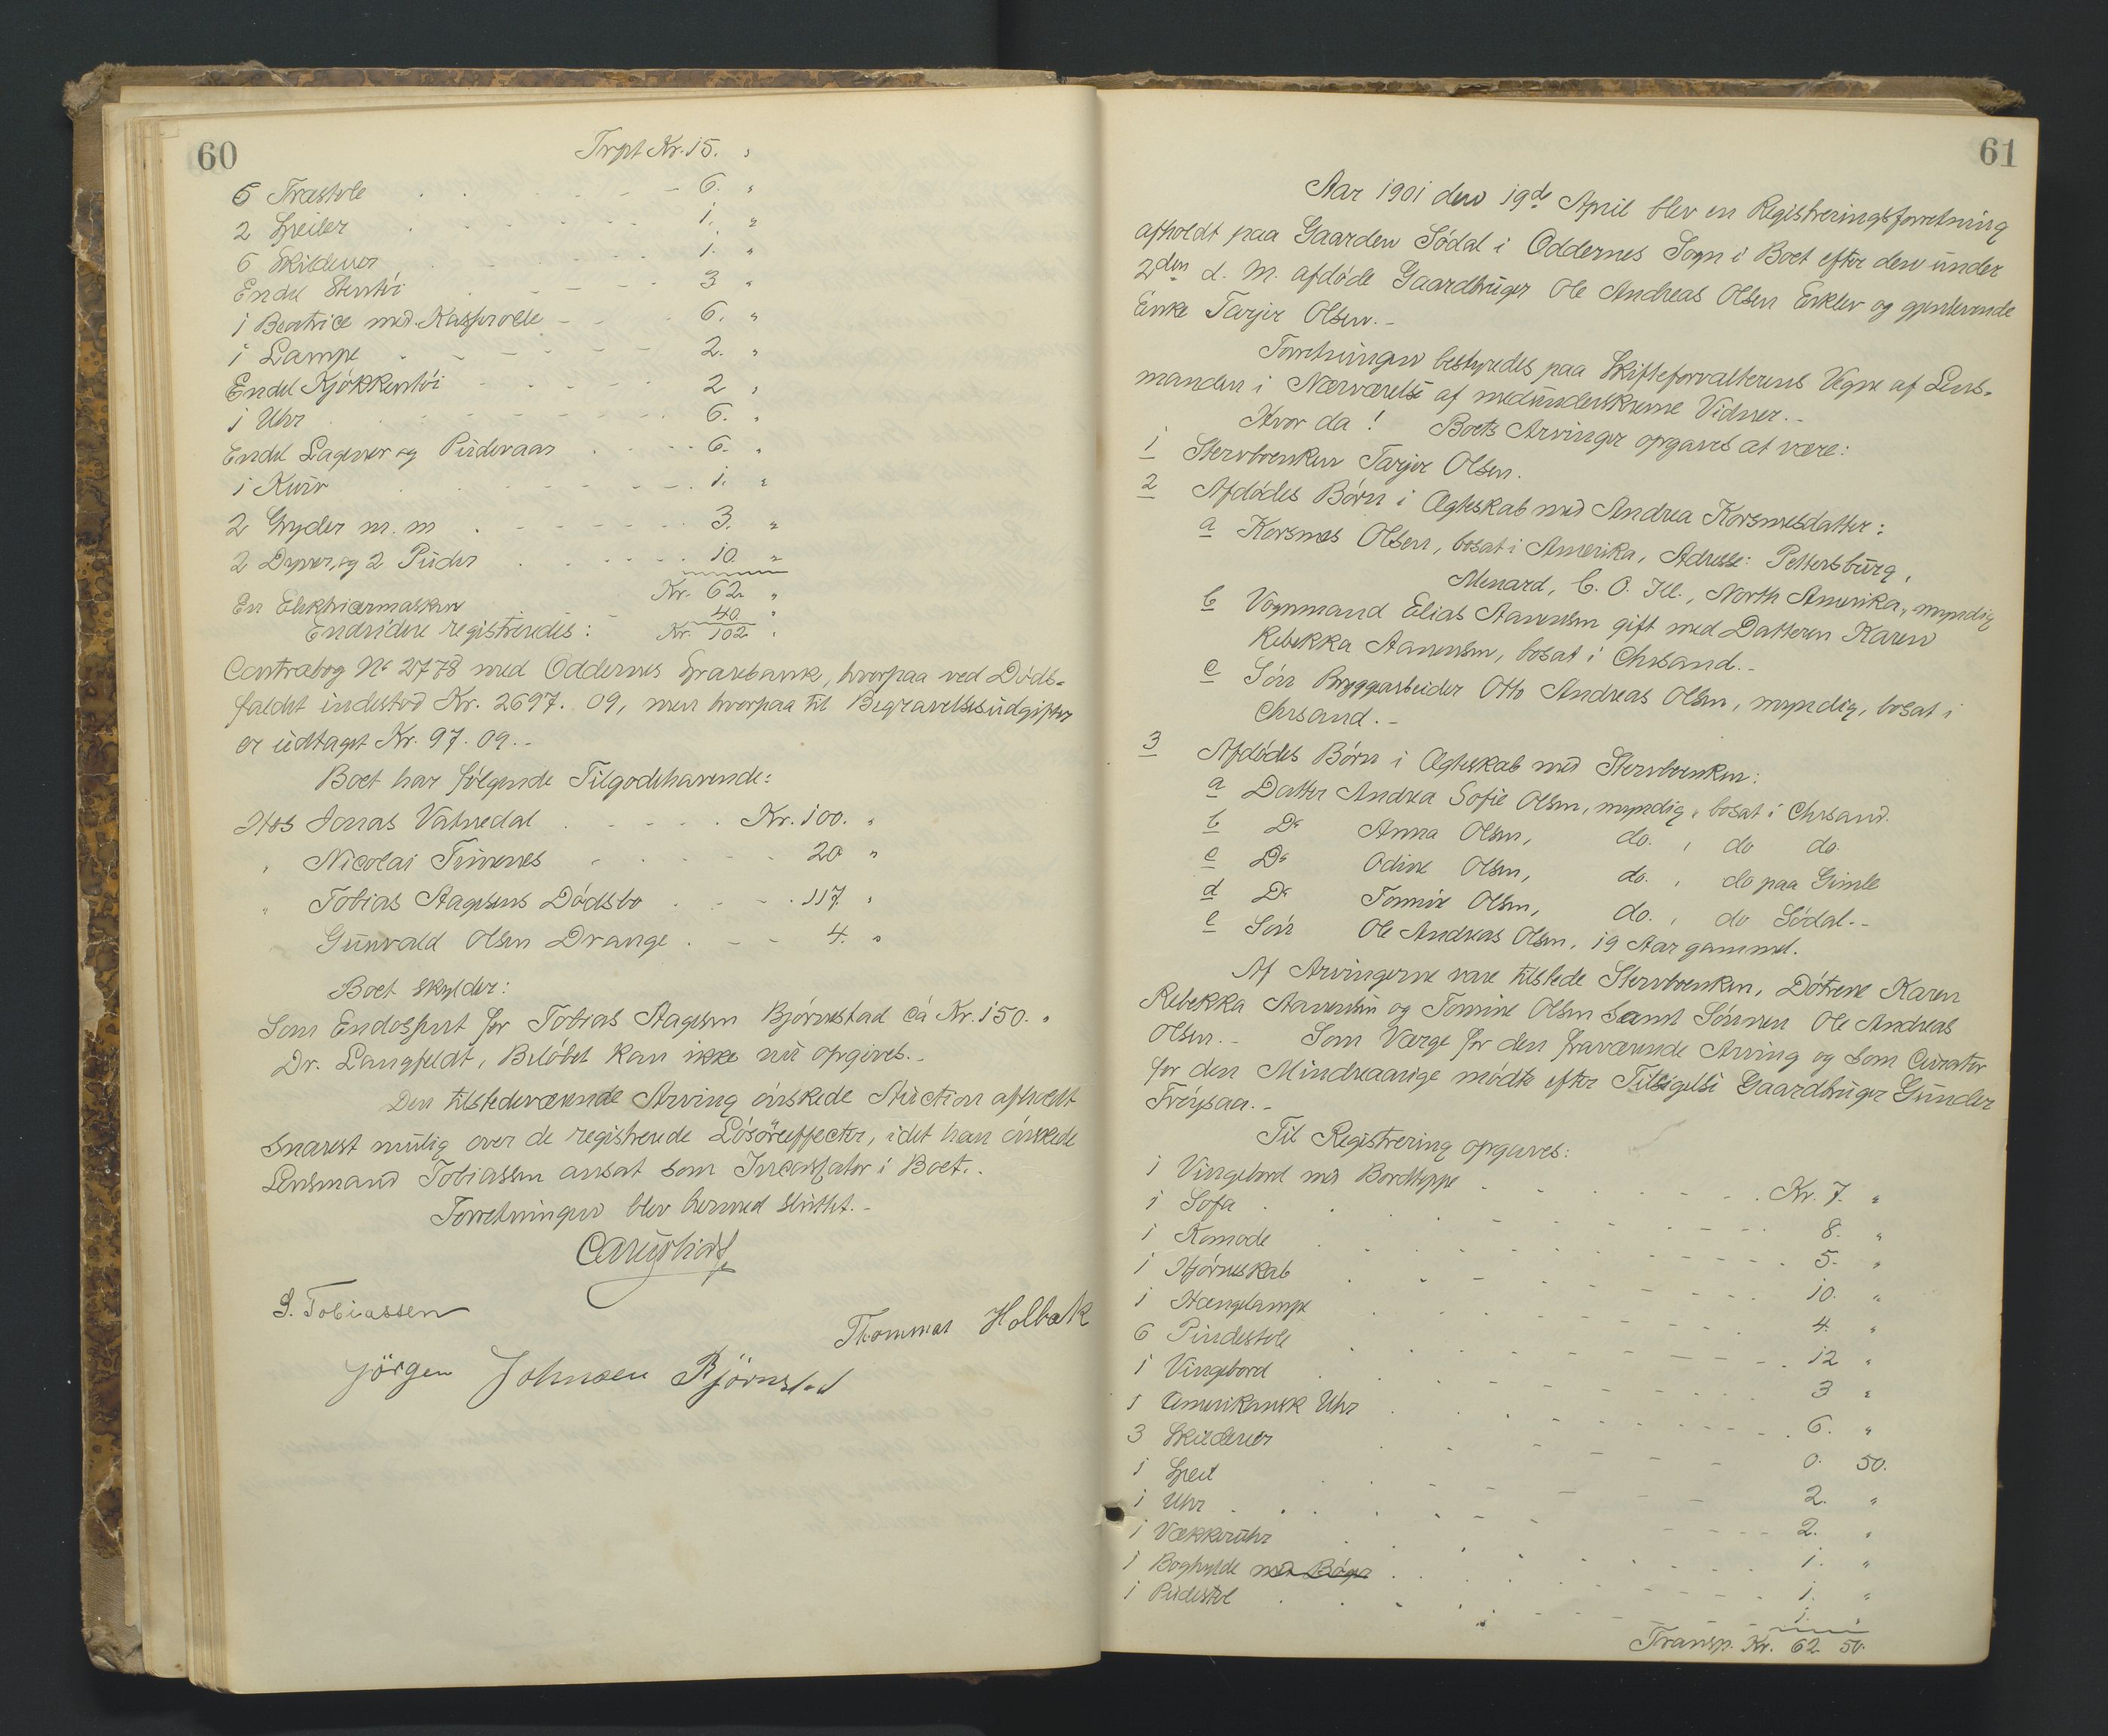 60
Trpt Kr. 15. "
6 Træstole . . . - - - 6. "
2 Speiler . . . - - - 1. "
6 Skilderier . . - - - 1. "
Endel Stentöi . - - - - 3 "
1 Beatrice med Kasserolle - - - 6. "
1 Lampe . - - - - - 2. "
Endel Kjökkentöi . - - - - 2 "
1 Uhr . - - - - - 6. "
Endel Lagener og Pudevaar . . - - 6. "
1 Kurv . . . - - - 1. "
2 Gryder m. m . - - - - 3. "
2 Dyner, og 2 Puder . . - - - 10. "
Kr. 62. "
En Elektricermaskin - 40. "
Endvidere registreredes: Kr. 102. "
Contrabog No 2778 med Oddernes Sparebank, hvorpaa ved Döds-
faldet indestod Kr. 2697. 09, men hvorpaa til Begravelsesudgifter
er udtaget Kr. 97. 09. -
Boet har følgende Tilgodehavende:
Hos Jonas Vatnedal . . . . . Kr. 100. "
" Nicolai Timenes . . . . . 20 "
" Tobias Aagesens Dödsbo . . . . 117. "
Gunvald Olsen Drange . - - 4. "
Boet skylder:
Som Endossent for Tobias Aagesen Björnestad ca Kr. 150. "
Dr. Langfeldt, Belöbet kan ikke nu opgives. -
Den tilstedeværende Arving önskede Auction afholdt
snarest mulig over de registrerede Lösöreeffecter, idet han önskede
Lensmand Tobiassen ansat som Incassator i Boet. -
Forretningen blev hermed sluttet. -
S. Tobiassen
Thommas Holbæk
Jörgen Johnsen Björnstad
61
Aar 1901 den 19de April blev en Registreringsforretning
afholdt paa Gaarden Södal i Oddernes Sogn i Boet efter den under
2den d. M. afdöde Gaardbruger Ole Andreas Olsen Enklev og gjenlevende
Enke Tarjer Olsen. -
Forretningen bestyredes paa Skifteforvalterens Vegne af Lens-
manden i Nærværelse af medunderskrevne Vidner. -
Hvor da! Boets Arvinger opgaves at være:
1 Stervboenken Tarjer Olsen.
2 Afdödes Börn i Ægteskab med Andrea Korsmesdatter:
a Korsmes Olsen, bosat i Amerika, Adresse: Pettersburg,
Menard, C. O. Ill., North Amerika, myndig
b Vognmand Elias Aanensen gift med Datteren Karen
Rebekka Aanensen, bosat i Chrsand. -
c Sön Bryggearbeider Otto Andreas Olsen, myndig, bosat i
Chrsand. -
3 Afdödes Börn i Ægteskab med Stervboenken:
a Datter Andrea Sofie Olsen, myndig, bosat i Chrsand.
b Do Anna Olsen, do. , do do.
c Do Odine Olsen, do. , do paa Gimle
d Do Tomine Olsen, do. , do Södal. -
e Sön Ole Andreas Olsen, 19 Aar gammel.
Af Arvingerne vare tilstede Stervboenken, Dötrene Karen
Rebekka Aanensen og Tomine Olsen samt Sönnen Ole Andreas
Olsen. - Som Værge for den fraværende Arving og som Curator
for den Mindreaarige mödte efter Tilsigelse Gaardbruger Gunder
Fröysaa. -
Til Registrering opgaves:
1 Vingebord med Bordteppe - - - - Kr. 7. "
1 Sofa . . . - - - 8. "
1 Komode . . . - - - 5. "
1 Hjörneskab . . . - - - 10. "
1 Hængelampe . . . - - - 4. "
6 Pindestole . . . - - - 12 "
1 Vingebord . . . - - - 3 "
1 Amerikansk Uhr . . . - - - 6. "
3 Skilderier . . . - - - 0. 50.
1 Speil . . . - - - 2. "
1 Uhr . . . - - - 2. "
1 Vækkeruhr . . . - - - 1. "
1 Boghylde med Böger . . . - - - 1. "
1 Pudestol . . . - - - 1. "
Transp. Kr. 62. 50.